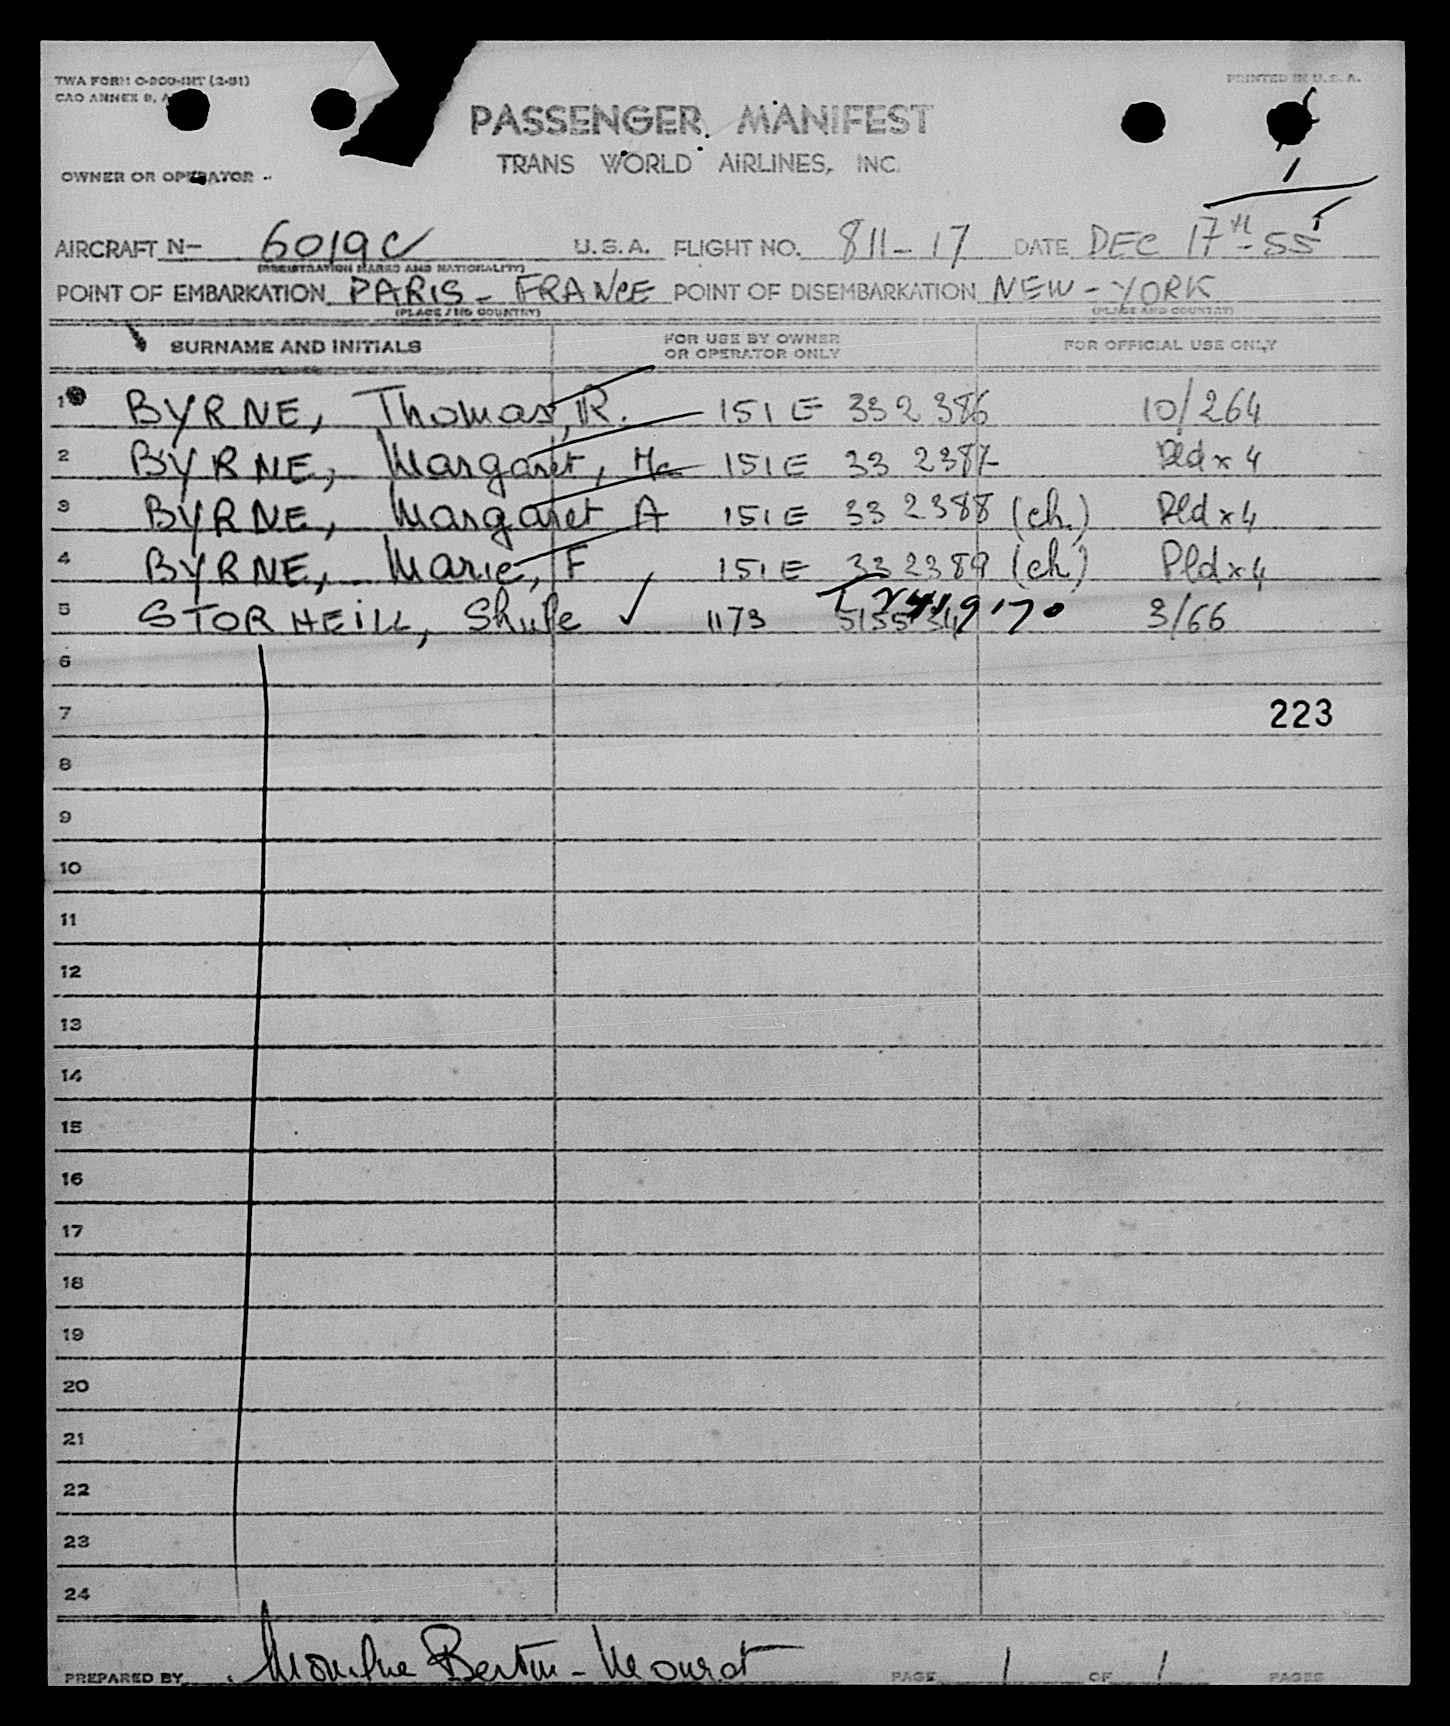 TWA FORM C-200-INT (2-51)
PRINTED IN U.S.A.
CAO ANNEX 9, A
PASSENGER MANIFEST
TRANS WORLD AIRLINES, INC.
OWNER OR OPERATOR
1
AIRCRAFT N- 6019C U.S.A. FLIGHT NO. 811-17 DATE DEC 17TH-55
(REGISTRATION MARKS AND NATIONALITY)
POINT OF EMBARKATION PARIS - FRANCE POINT OF DISEMBARKATION NEW - YORK
(PLACE AND COUNTRY) (PLACE AND COUNTRY)
SURNAME AND INITIALS FOR USE BY OWNER OR OPERATOR ONLY FOR OFFICIAL USE ONLY
1 BYRNE, Thomas, R. 151 E 332 386 10/264
2 BYRNE, Margaret, Mc 151 E 33 2387 Pld x 4
3 BYRNE, Margaret A 151 E 33 2388 (ch.) Pld x 4
4 BYRNE, Marie, F 151 E 33 2389 (ch) Pld x 4
5 STORHEILL, 1173 3/66
6
7 223
8
9
10
11
12
13
14
15
16
17
18
19
20
21
22
23
24
PREPARED BY PAGE 1 OF 1 PAGES